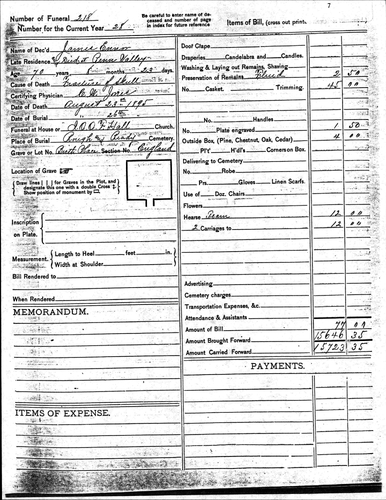 7
Number of Funeral 218
Number for the Current Year 28
Be careful to enter name of deceased and number of page in index for future reference
Items of Bill, (cross out print.
Name of Dec'd James
Late Residence Penn Valley
Age, 70 years months 23 days
Cause of Death Fracture of Skull
Certifying Physician W. Jones
Date of Death August 23rd 1895
Date of Burial " 26th "
Funeral at House or I.O.O.F. Hall Church.
Place of Burial Rough & Ready Cemetery.
Grave or Lot No. Birth Place Section No. England
Location of Grave
Draw lines ( ) for Graves in the Plot, and designate this one with a double Cross
Show position of monument by
Inscription on Plate.
Measurement. Length to Heel feet in.
Width at Shoulder
Bill Rendered to
When Rendered
MEMORANDUM.
ITEMS OF EXPENSE.
Door Crape
Draperies Candelabra and Candles.
Washing & Laying out Remains, Shaving
Preservation of Remains Fluid 2 50
No. Casket. Trimming. 45 00
No. Handles
Plate engraved 1 50
Outside Box, (Pine, Chestnut, Oak, Cedar) 4 00
P'lY Hdl's Corners on Box.
Delivering to Cemetery
No. Robe
Prs. Gloves Linen Scarfs.
Use of Doz. Chairs
Flowers
Hearse 12 00
2 Carriages to 12 00
Advertising
Cemetery charges
Transportation Expenses, &c.
Attendance & Assistants
Amount of Bill 77 00
Amount Brought Forward 15646 35
Amount Carried Forward 15723 35
PAYMENTS.